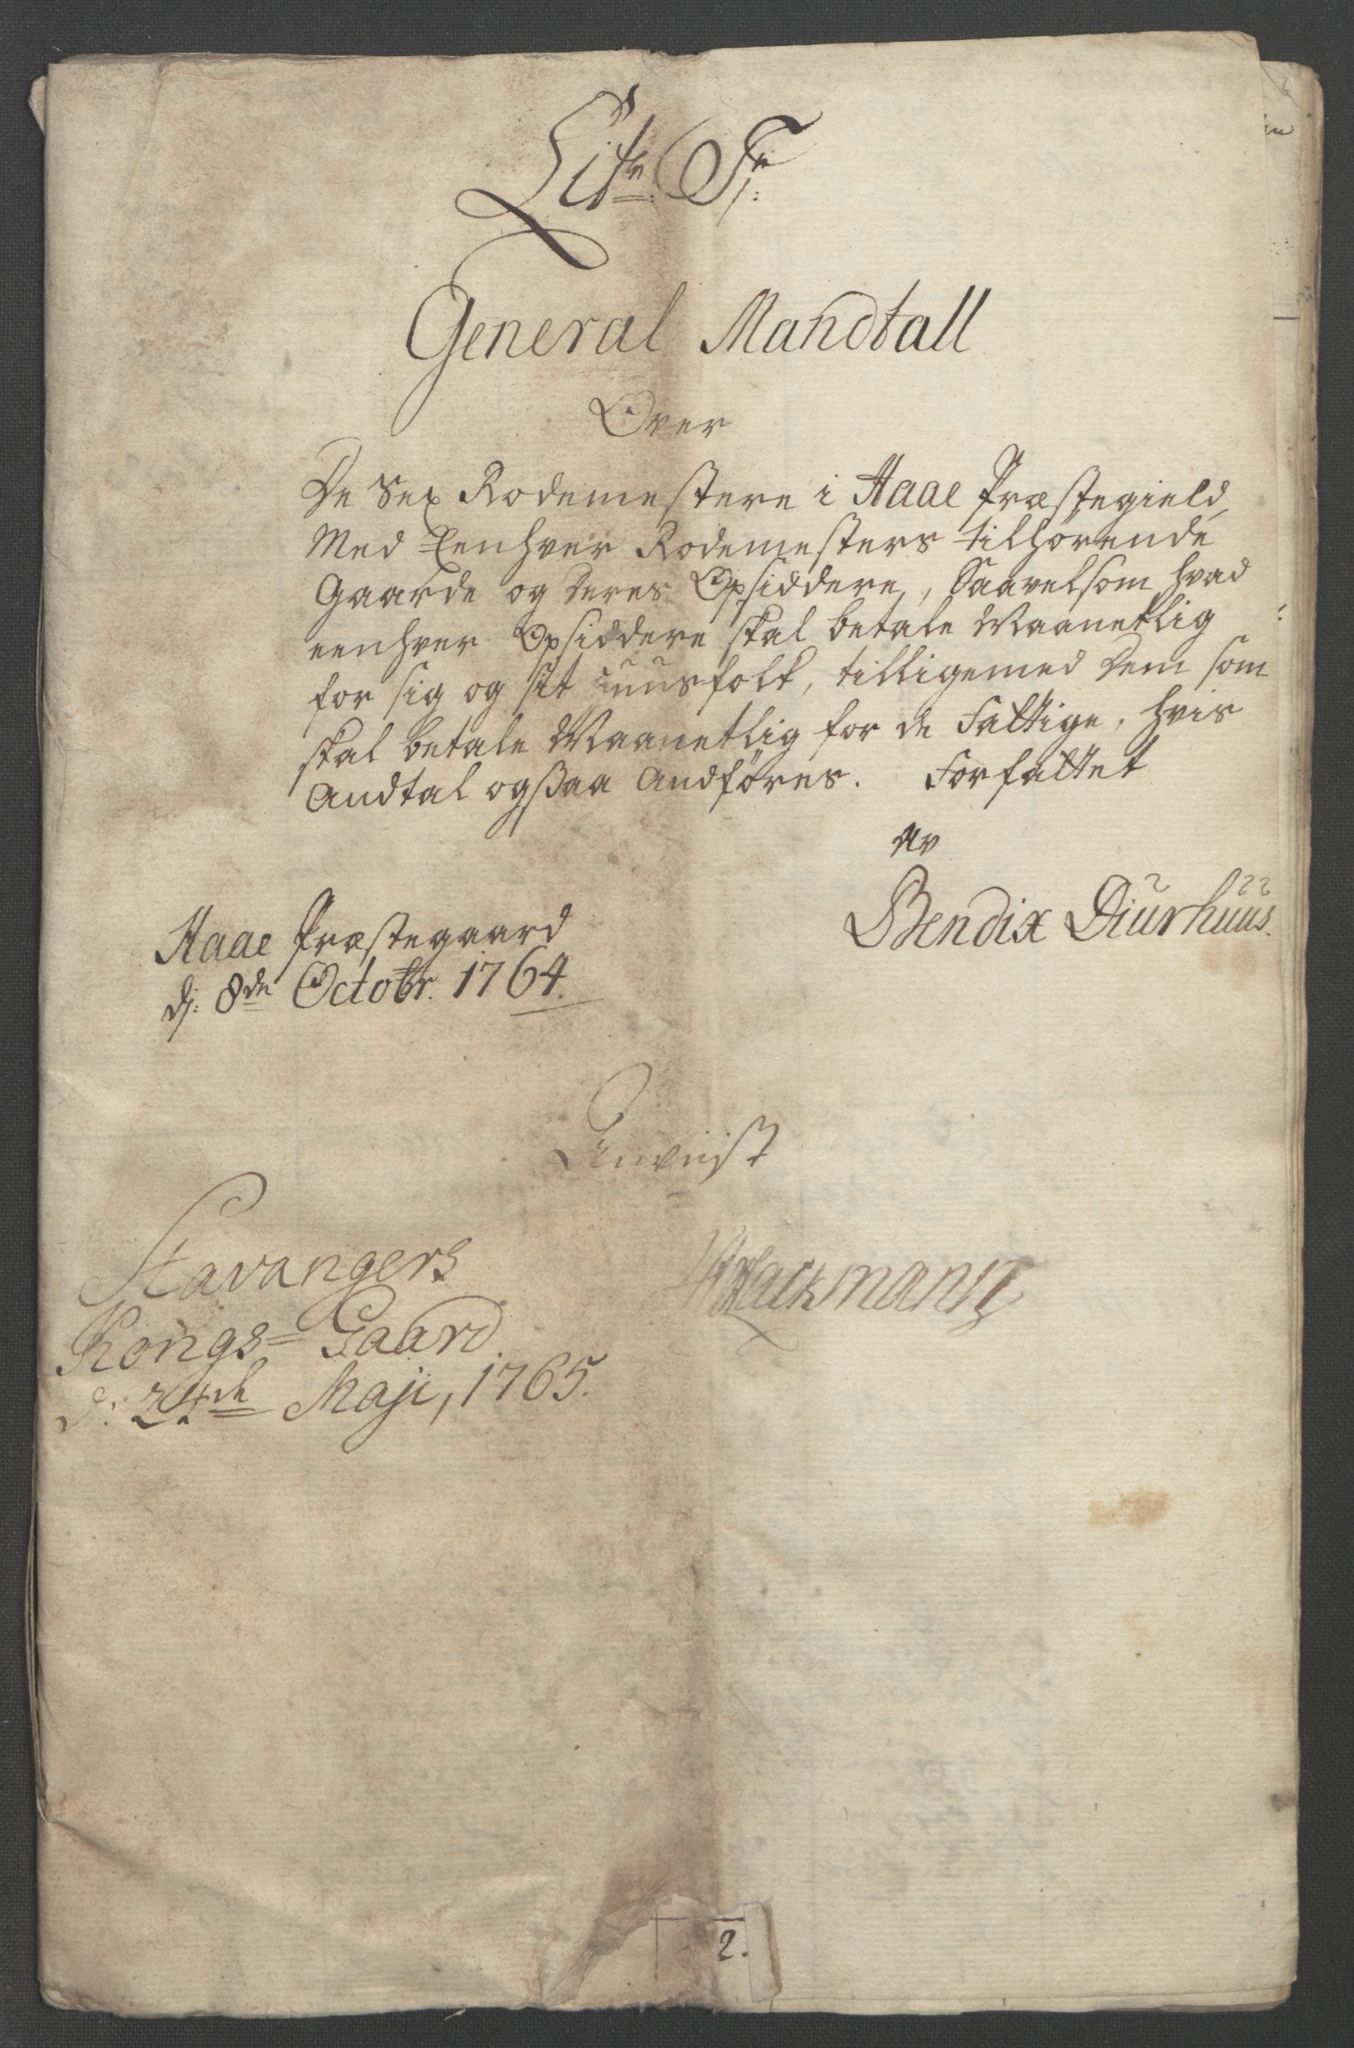 Litr: F:
General Mandtall
Over
De Sex Rodemestere i Haae Præstegield,
Med Eenhver Rodemesters tilhørende
Gaarde og deres Opsiddere, Saavelsom hvad
eenhver Opsiddere skal betale Maanetlig
for sig og sit Huusfolk, tilligemed Dem som
skal betale Maanetlig for de Fattige, hvis
Andtal ogsaa Andføres. Forfattet
Av
Bendix Diurhuus.
Haae Præstegaard
d: 8de Octobr. 1764.
Anviist
Stavangers
Kongs=Gaard
d: 24de Maji, 1765.
Hackmann
2.